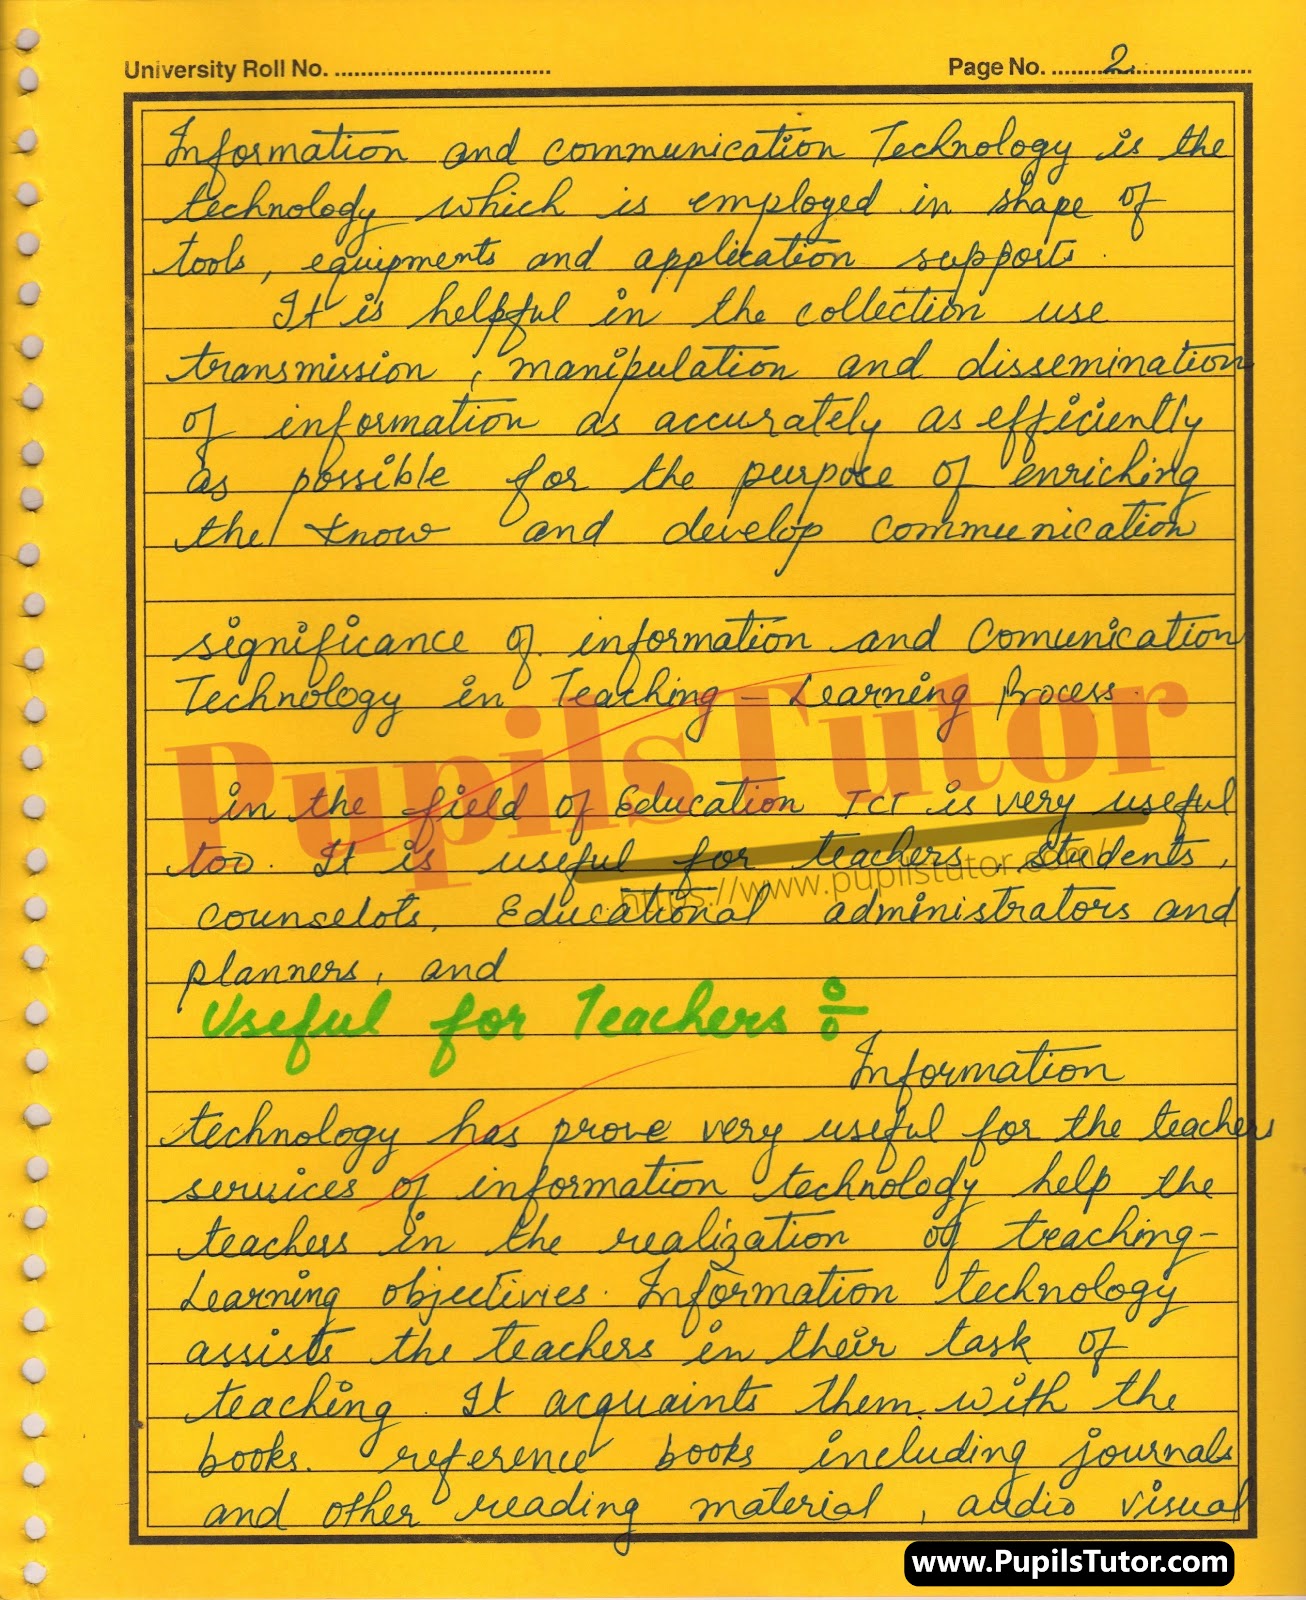 University Roll No. ................................ Page No. ........2................
Information and communication Technology is the
technology which is employed in shape of
tools, equipments and application supports.
It is helpful in the collection use
transmission, manipulation and dissemination
of information as accurately as efficiently
as possible for the purpose of enriching
the know and develop communication
significance of information and Comunication
Technology in Teaching - Learning Process.
PupilsTutor
in the field of Education ICT is very useful
too. It is useful for teachers, students,
https://www.pupilstutor.com/
counselots, Educational administrators and
planners, and
Useful for Teachers ÷
Information
technology has prove very useful for the teachers
services of information technology help the
teachers in the realization of teaching-
Learning objectivies. Information technology
assists the teachers in their task of
teaching. It acquaints them with the
books. reference books including journals
and other reading material, audio visual
www.PupilsTutor.com